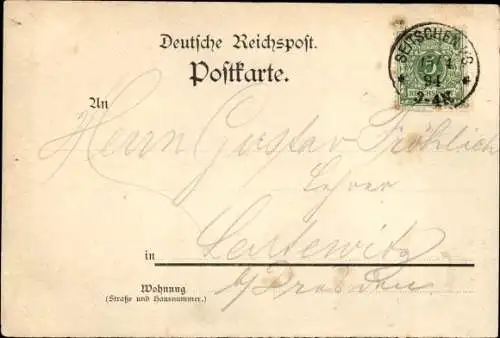 Deutsche Reichspost.
Postkarte.
SEITSCHEN
94
2-4N
5
An
Herrn Gustav Fröhlich
Lehrer
in
b/Dresden
Wohnung
(Straße und Hausnummer.)